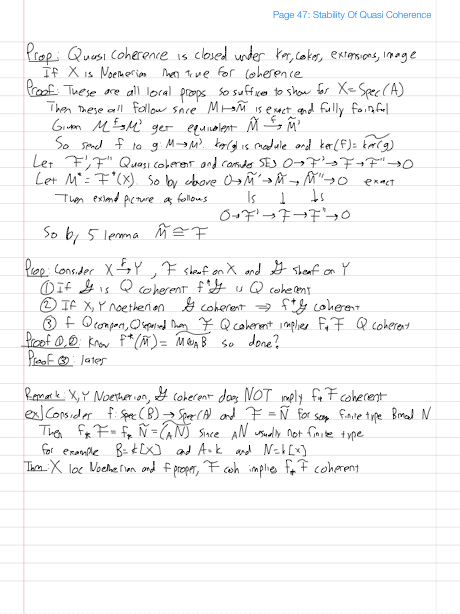 Page 47: Stability Of Quasi Coherence
Prop: Quasi coherence is closed under ker, coker, extensions, image
If X is Noetherian then true for coherence
Proof: These are all local props so suffices to show for X=Spec(A)
Then these all follow since M↦M̃ is exact and fully faithful
Given M̃ →f M̃' get equivalent M̃ →f M̃'
So send f to g: M→M'. ker(g) is module and ker(f)= ker(g)~
Let F', F'' Quasi coherent and consider SES 0→F'→F→F''→0
Let M* = F*(X). So by above 0→M̃'→M̃→M̃''→0 exact
Then extend picture as follows
0→F'→F→F''→0
So by 5 lemma M̃ ≅ F
Prop: Consider X →f Y, F sheaf on X and G sheaf on Y
① If G is Q coherent f*G is Q coherent
② If X, Y noetherian G coherent ⇒ f*G coherent
③ f Qcompact, Qseparated then F Qcoherent implies f₊F Q coherent
Proof ①,②: Know f*(M̃) = M⊗_A B so done?
Proof ③: later
Remark: X, Y Noetherian, G coherent does NOT imply f₊F coherent
ex] Consider f: Spec(B)→Spec(A) and F = Ñ for some finite type B mod N
Then f₊F = f₊Ñ = (_A N)~ since _A N usually not finite type
For example B=k[x] and A=k and N=k[x]
Thm: X loc Noetherian and f proper, F coh implies f₊F coherent